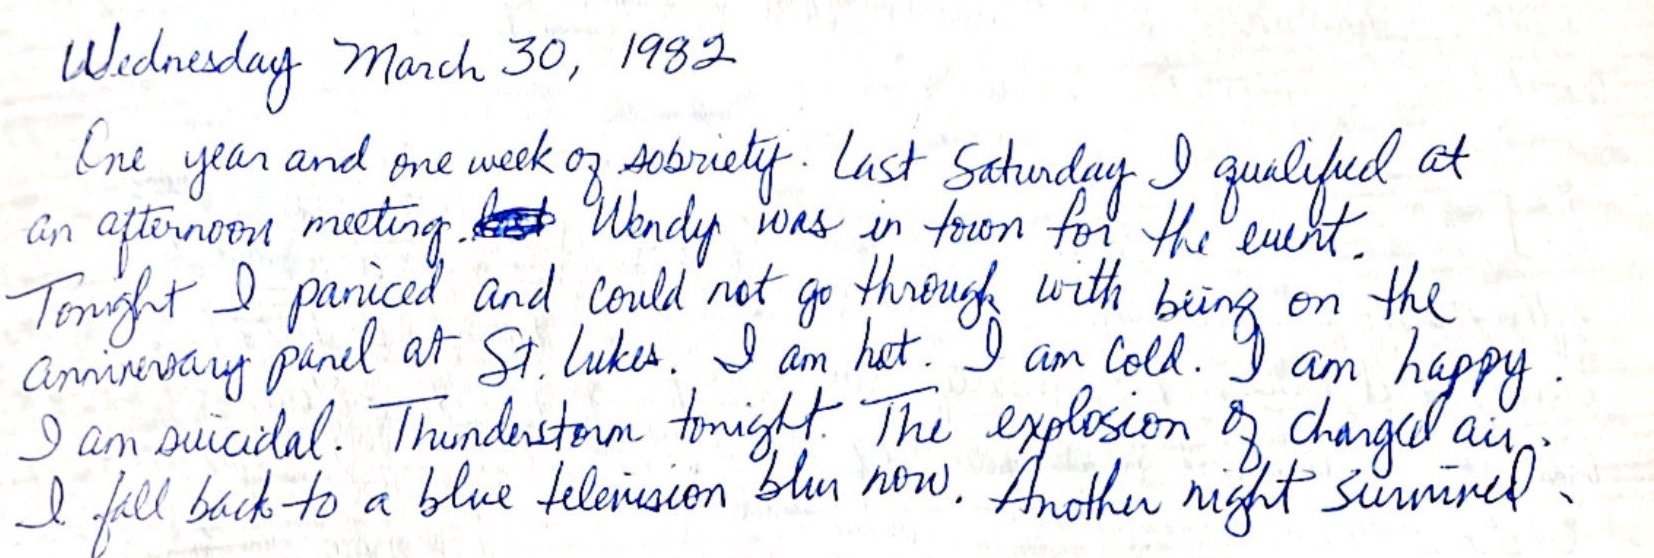 Wednesday March 30, 1982
One year and one week of sobriety. Last Saturday I qualified at
an afternoon meeting. Wendy was in town for the event.
Tonight I paniced and could not go through with being on the
anniversary panel at St. Lukes. I am hot. I am cold. I am happy.
I am suicidal. Thunderstorm tonight. The explosion of charged air.
I fall back to a blue television blur now. Another night survived.